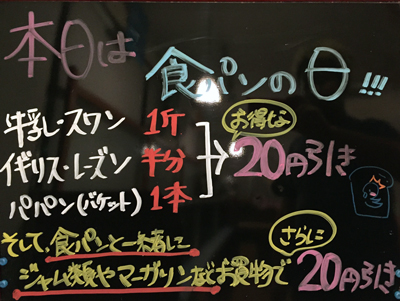 本日は
食パンの日!!!
牛乳・スワン 1斤
イギリス・レーズン 半分
パパン(バケット) 1本
お得な
20円引き
そして、食パンと一緒に
ジャム類やマーガリンなどお買物で
さらに
20円引き